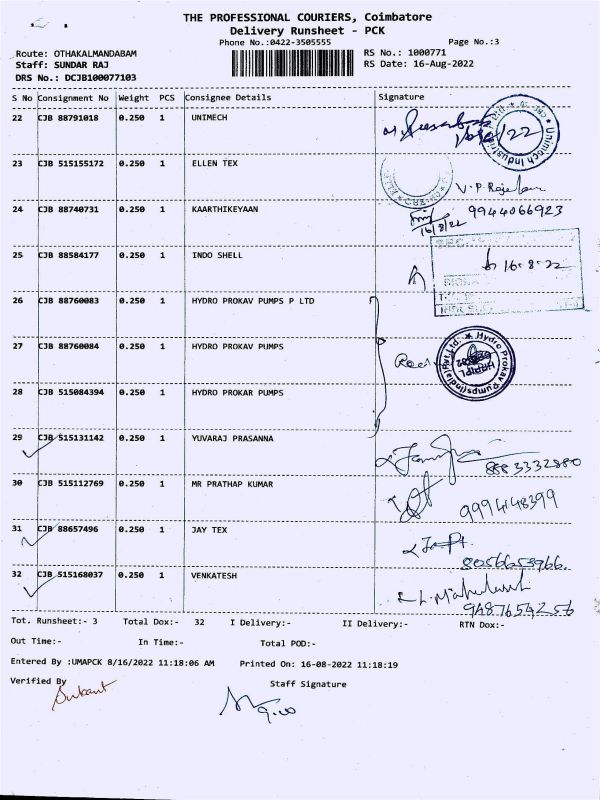 THE PROFESSIONAL COURIERS, Coimbatore
Delivery Runsheet - PCK
Phone No.:0422-3505555
Page No.:3
Route: OTHAKALMANDABAM
RS No.: 1000771
Staff: SUNDAR RAJ
RS Date: 16-Aug-2022
DRS No.: DCJB100077103
S No Consignment No Weight PCS Consignee Details Signature
22 CJB 88791018 0.250 1 UNIMECH
23 CJB 515155172 0.250 1 ELLEN TEX
24 CJB 88740731 0.250 1 KAARTHIKEYAAN 9944066923
16/8/22
25 CJB 88584177 0.250 1 INDO SHELL 16-8-22
26 CJB 88760083 0.250 1 HYDRO PROKAV PUMPS P LTD
27 CJB 88760084 0.250 1 HYDRO PROKAV PUMPS
Hydro Prokav Pumps(India)Pvt.Ltd.
28 CJB 515084394 0.250 1 HYDRO PROKAR PUMPS
29 CJB 515131142 0.250 1 YUVARAJ PRASANNA
30 CJB 515112769 0.250 1 MR PRATHAP KUMAR 9994148399
31 CJB 88657496 0.250 1 JAY TEX
32 CJB 515168037 0.250 1 VENKATESH
9487654256
Tot. Runsheet:- 3 Total Dox:- 32 I Delivery:- II Delivery:- RTN Dox:-
Out Time:- In Time:- Total POD:-
Entered By :UMAPCK 8/16/2022 11:18:06 AM Printed On: 16-08-2022 11:18:19
Verified By Staff Signature